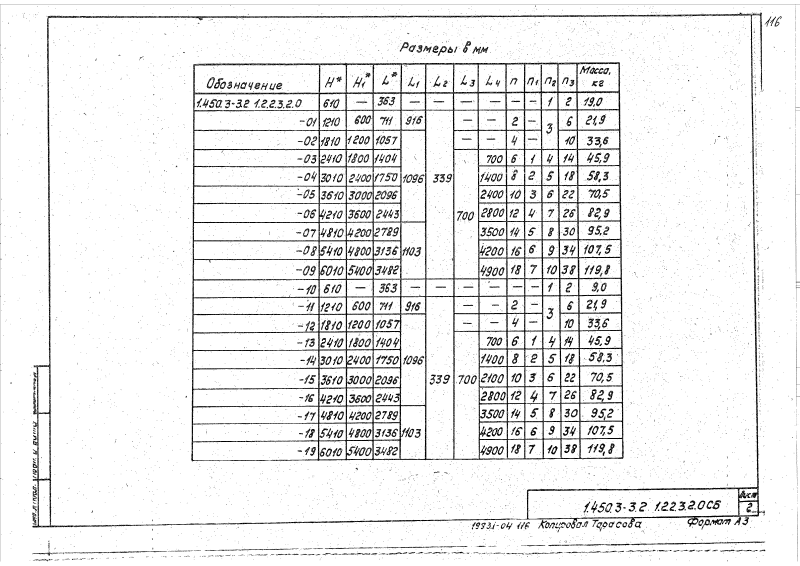 116
Размеры в мм
Обозначение H* H1* L* L1 L2 L3 L4 n n1 n2 n3 Масса, кг
1.450.3-3.2 1.2.2.3.2.0 610 — 363 — — — — — — 1 2 19,0
-01 1210 600 711 916 339 — — 2 — 3 6 21,9
-02 1810 1200 1057 — — 4 — 10 33,6
-03 2410 1800 1404 1096 700 700 6 1 4 14 45,9
-04 3010 2400 1750 1400 8 2 5 18 58,3
-05 3610 3000 2096 2400 10 3 6 22 70,5
-06 4210 3600 2443 2800 12 4 7 26 82,9
-07 4810 4200 2789 1103 3500 14 5 8 30 95,2
-08 5410 4800 3136 4200 16 6 9 34 107,5
-09 6010 5400 3482 4900 18 7 10 38 119,8
-10 610 — 363 — — — — — — 1 2 9,0
-11 1210 600 711 916 339 — — 2 — 3 6 21,9
-12 1810 1200 1057 — — 4 — 10 33,6
-13 2410 1800 1404 1096 700 700 6 1 4 14 45,9
-14 3010 2400 1750 1400 8 2 5 18 58,3
-15 3610 3000 2096 2100 10 3 6 22 70,5
-16 4210 3600 2443 2800 12 4 7 26 82,9
-17 4810 4200 2789 1103 3500 14 5 8 30 95,2
-18 5410 4800 3136 4200 16 6 9 34 107,5
-19 6010 5400 3482 4900 18 7 10 38 119,8
1.450.3-3.2 1.2.2.3.2.0 СБ
Лист
2
19331-04 116 Копировал Тарасова Формат А3